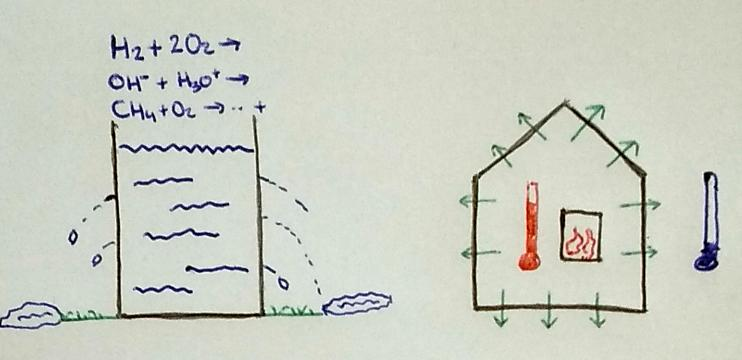 H₂ + 2O₂ →
OH⁻ + H₃O⁺ →
CH₄ + O₂ → ·· +